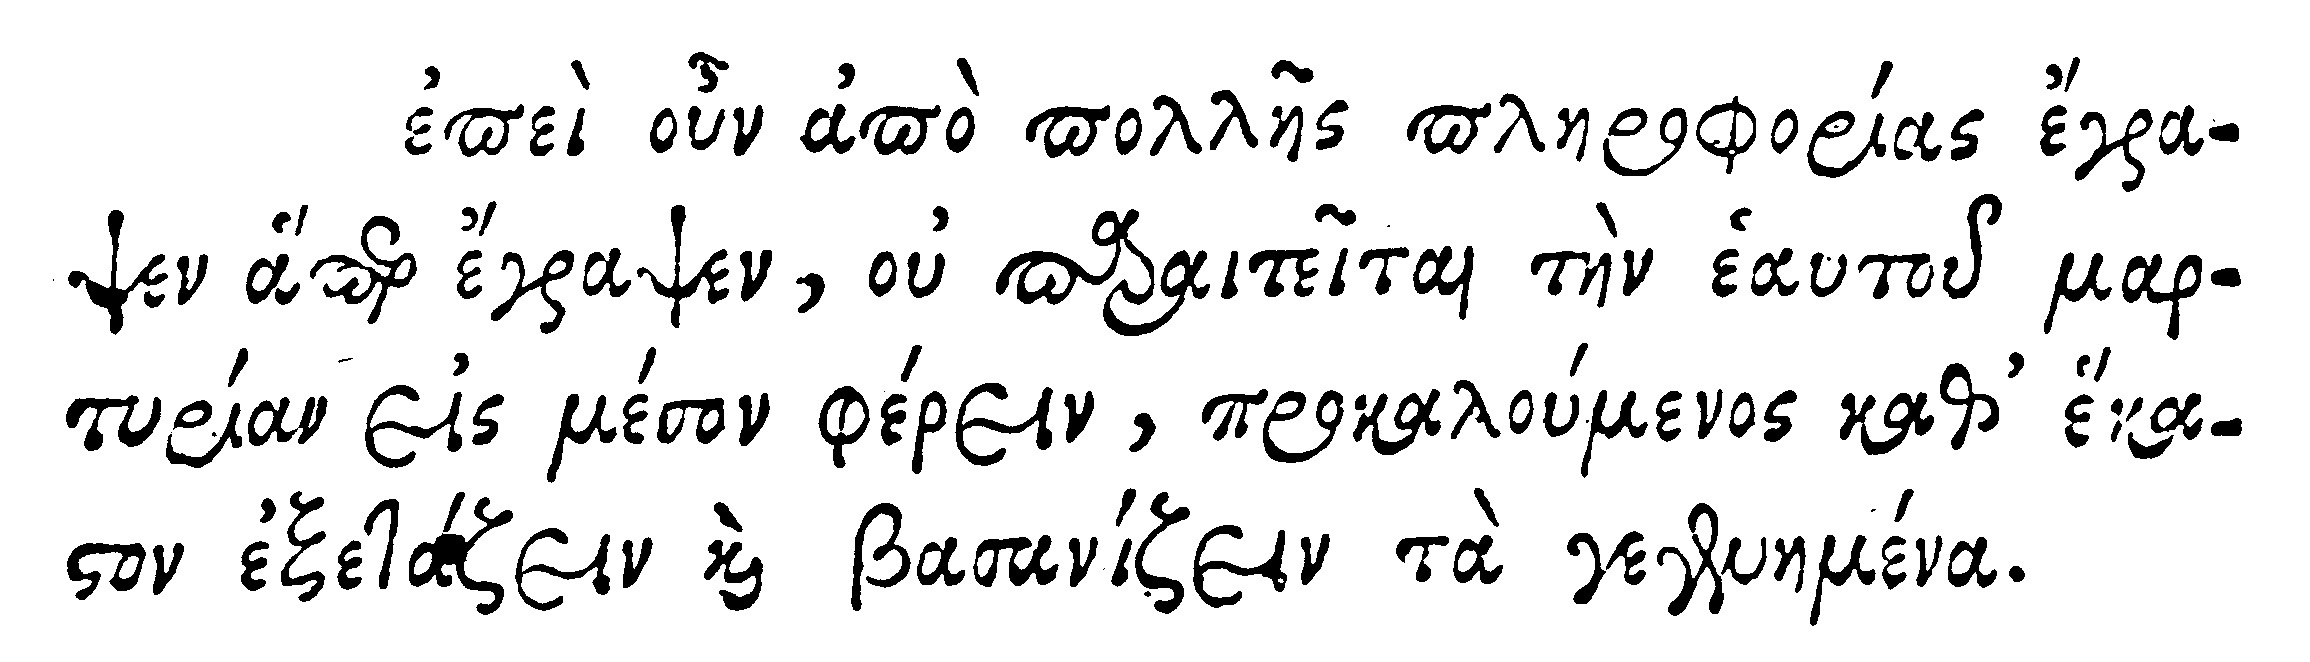 ἐπεὶ οὖν ἀπὸ πολλῆς πληροφορίας ἔγρα-
ψεν ἅπερ ἔγραψεν, οὐ παραιτεῖται τὴν ἑαυτοῦ μαρ-
τυρίαν εἰς μέσον φέρειν, προκαλούμενος καθ' ἕκα-
στον ἐξετάζειν καὶ βασανίζειν τὰ γεγενημένα.